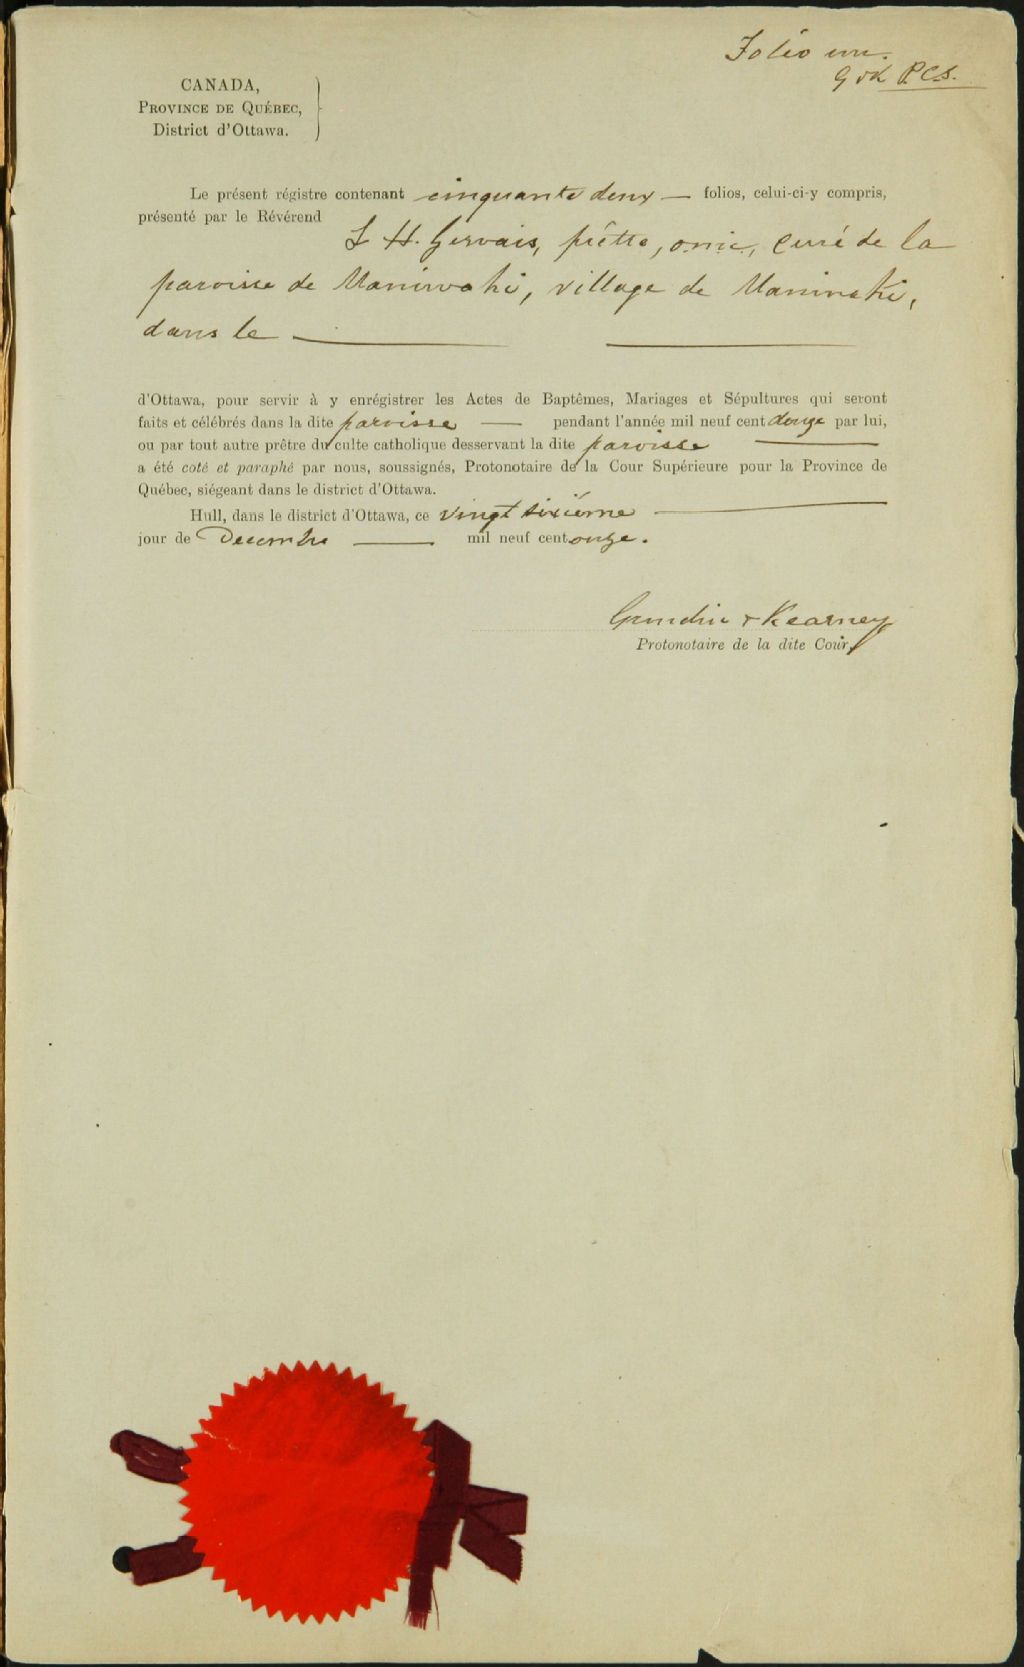 Folio un.
G & K P.C.S.
CANADA,
PROVINCE DE QUÉBEC,
District d'Ottawa.
Le présent régistre contenant cinquante deux — folios, celui-ci-y compris,
présenté par le Révérend
L H. Gervais, prêtre, o.m.i., curé de la
paroisse de Maniwaki, village de Maniwaki,
dans le
d'Ottawa, pour servir à y enrégistrer les Actes de Baptêmes, Mariages et Sépultures qui seront
faits et célébrés dans la dite paroisse — pendant l'année mil neuf cent douze par lui,
ou par tout autre prêtre du culte catholique desservant la dite paroisse —
a été coté et paraphé par nous, soussignés, Protonotaire de la Cour Supérieure pour la Province de
Québec, siégeant dans le district d'Ottawa.
Hull, dans le district d'Ottawa, ce vingt sixième —
jour de Decembre — mil neuf cent onze.
Grondin & Kearney
Protonotaire de la dite Cour.